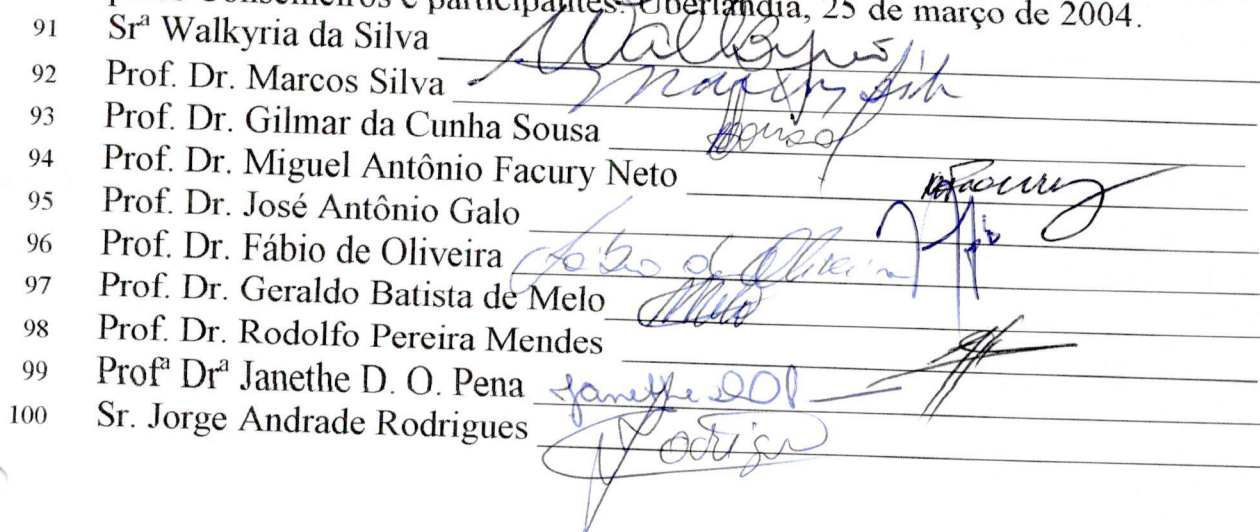 Conselheiros e participantes. Uberlândia, 25 de março de 2004.
91 Srª Walkyria da Silva
92 Prof. Dr. Marcos Silva
93 Prof. Dr. Gilmar da Cunha Sousa Sousa
94 Prof. Dr. Miguel Antônio Facury Neto Facury
95 Prof. Dr. José Antônio Galo
96 Prof. Dr. Fábio de Oliveira Fábio de Oliveira
97 Prof. Dr. Geraldo Batista de Melo Melo
98 Prof. Dr. Rodolfo Pereira Mendes
99 Profª Drª Janethe D. O. Pena Janethe DOP
100 Sr. Jorge Andrade Rodrigues